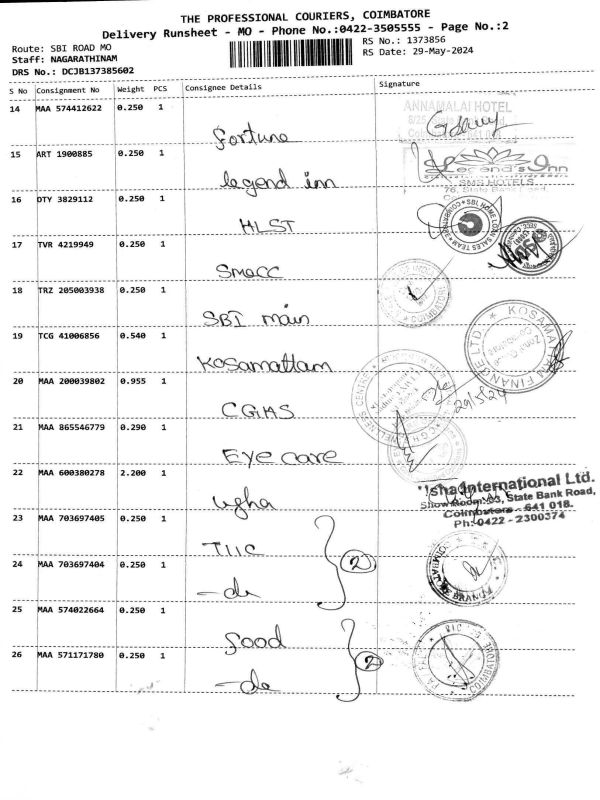 THE PROFESSIONAL COURIERS, COIMBATORE
Delivery Runsheet - MO - Phone No.:0422-3505555 - Page No.:2
Route: SBI ROAD MO
RS No.: 1373856
Staff: NAGARATHINAM
RS Date: 29-May-2024
DRS No.: DCJB137385602
S No Consignment No Weight PCS Consignee Details Signature
14 MAA 574412622 0.250 1
Fortune
ANNAMALAI HOTEL
15 ART 1900885 0.250 1
legend inn
Legend's Inn
SMS HOTELS
76, State Bank Road,
16 DTY 3829112 0.250 1
HLST
SBI HOME LOAN SALES TEAM
17 TVR 4219949 0.250 1
Smacc
18 TRZ 205003938 0.250 1
SBI main
19 TCG 41006856 0.540 1
Kosamattam
KOSAMATTAM FINANCE LTD.
20 MAA 200039802 0.955 1
CGHS
WELLNESS CENTRE
29/5/24
21 MAA 865546779 0.290 1
Eye care
22 MAA 600380278 2.200 1
ugha
Usha International Ltd.
Show Room: 53, State Bank Road,
Coimbatore - 641 018.
Ph: 0422 - 2300374
23 MAA 703697405 0.250 1
TIIC
24 MAA 703697404 0.250 1
-do
2
25 MAA 574022664 0.250 1
food
26 MAA 571171780 0.250 1
-do
2